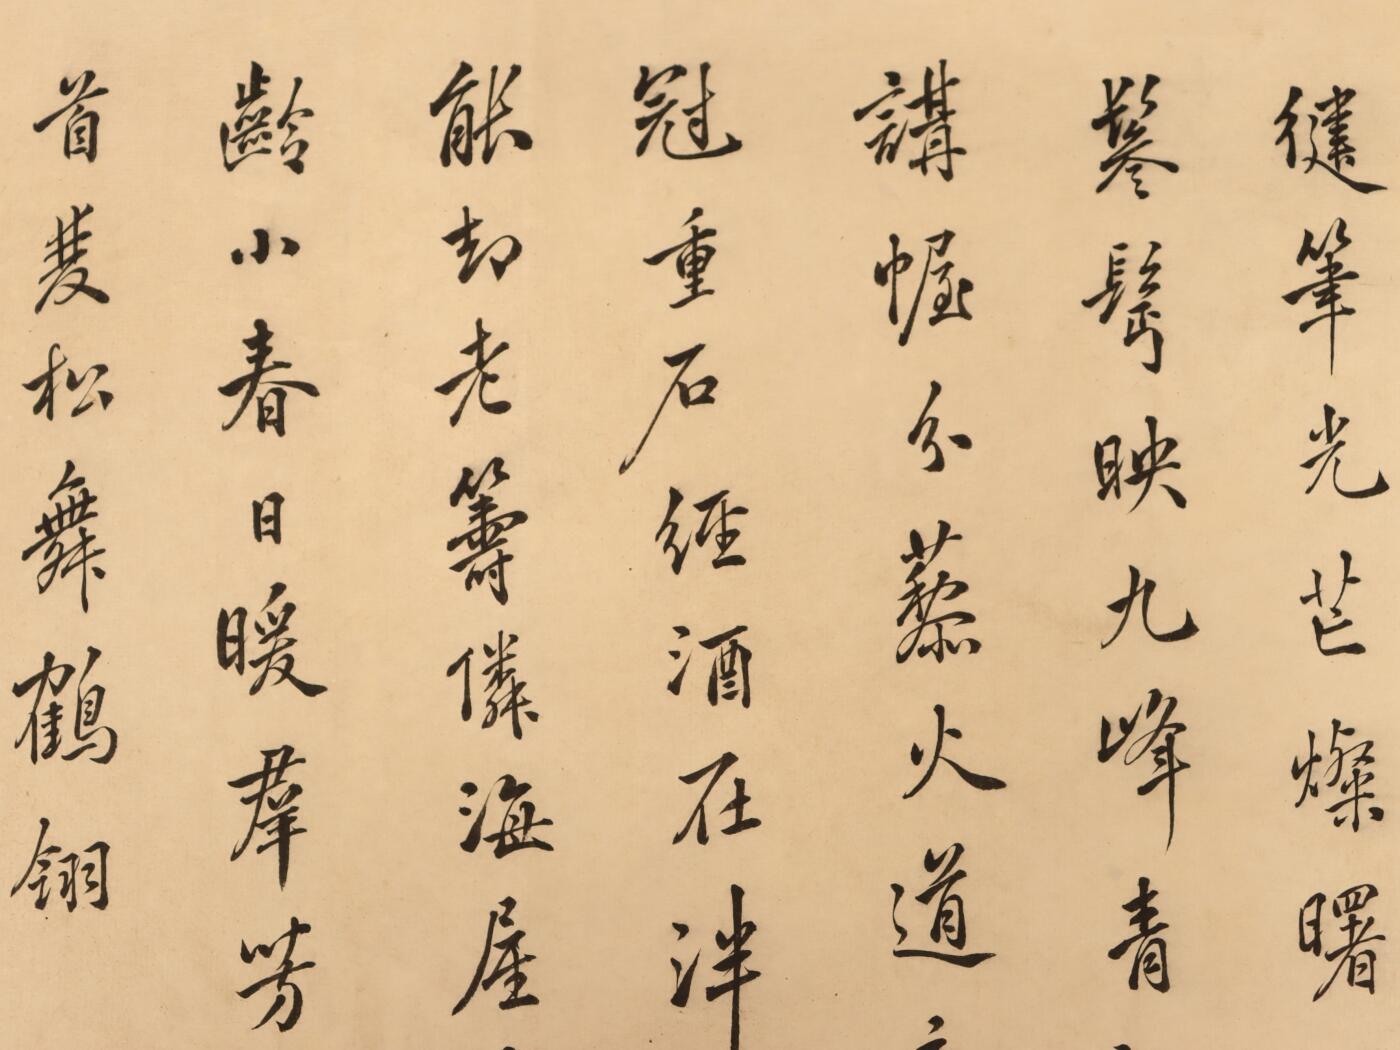 縫筆光芒燦曙
鬖髩映九峰青
講幄分藜火道
冠重石經酒在泮
能却老籌儛海屋
齡小春日暖羣芳
首䕫松舞鶴翎